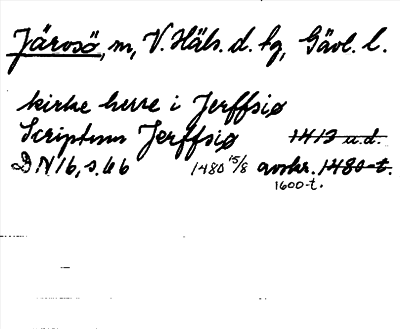 Järvsö, m, V. Häls. d. tg, Gävl. l.
kirke herre i Jerffsiø
Scriptum Jerffsiø 1413 u.d.
DN 16, s. 66 1480 15/8 avskr. 1480-t.
1600-t.